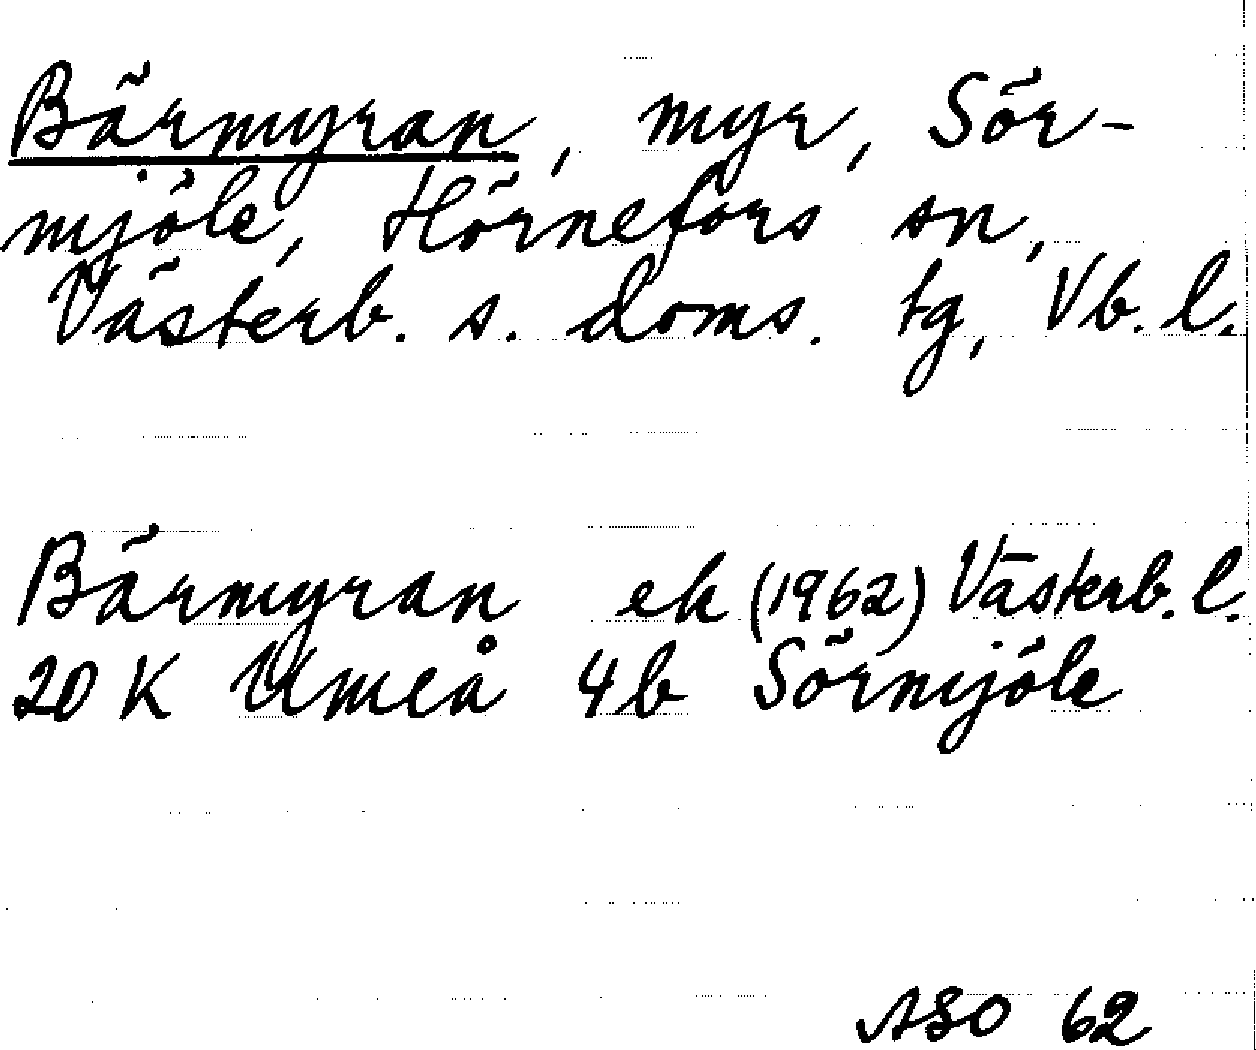 Bärmyran, myr, Sör-
mjöle, Hörnefors sn,
Västerb. s. doms. tg, Vb. l.
Bärmyran ek (1962) Västerb. l.
20 K Umeå 4b Sörmjöle
ASO 62